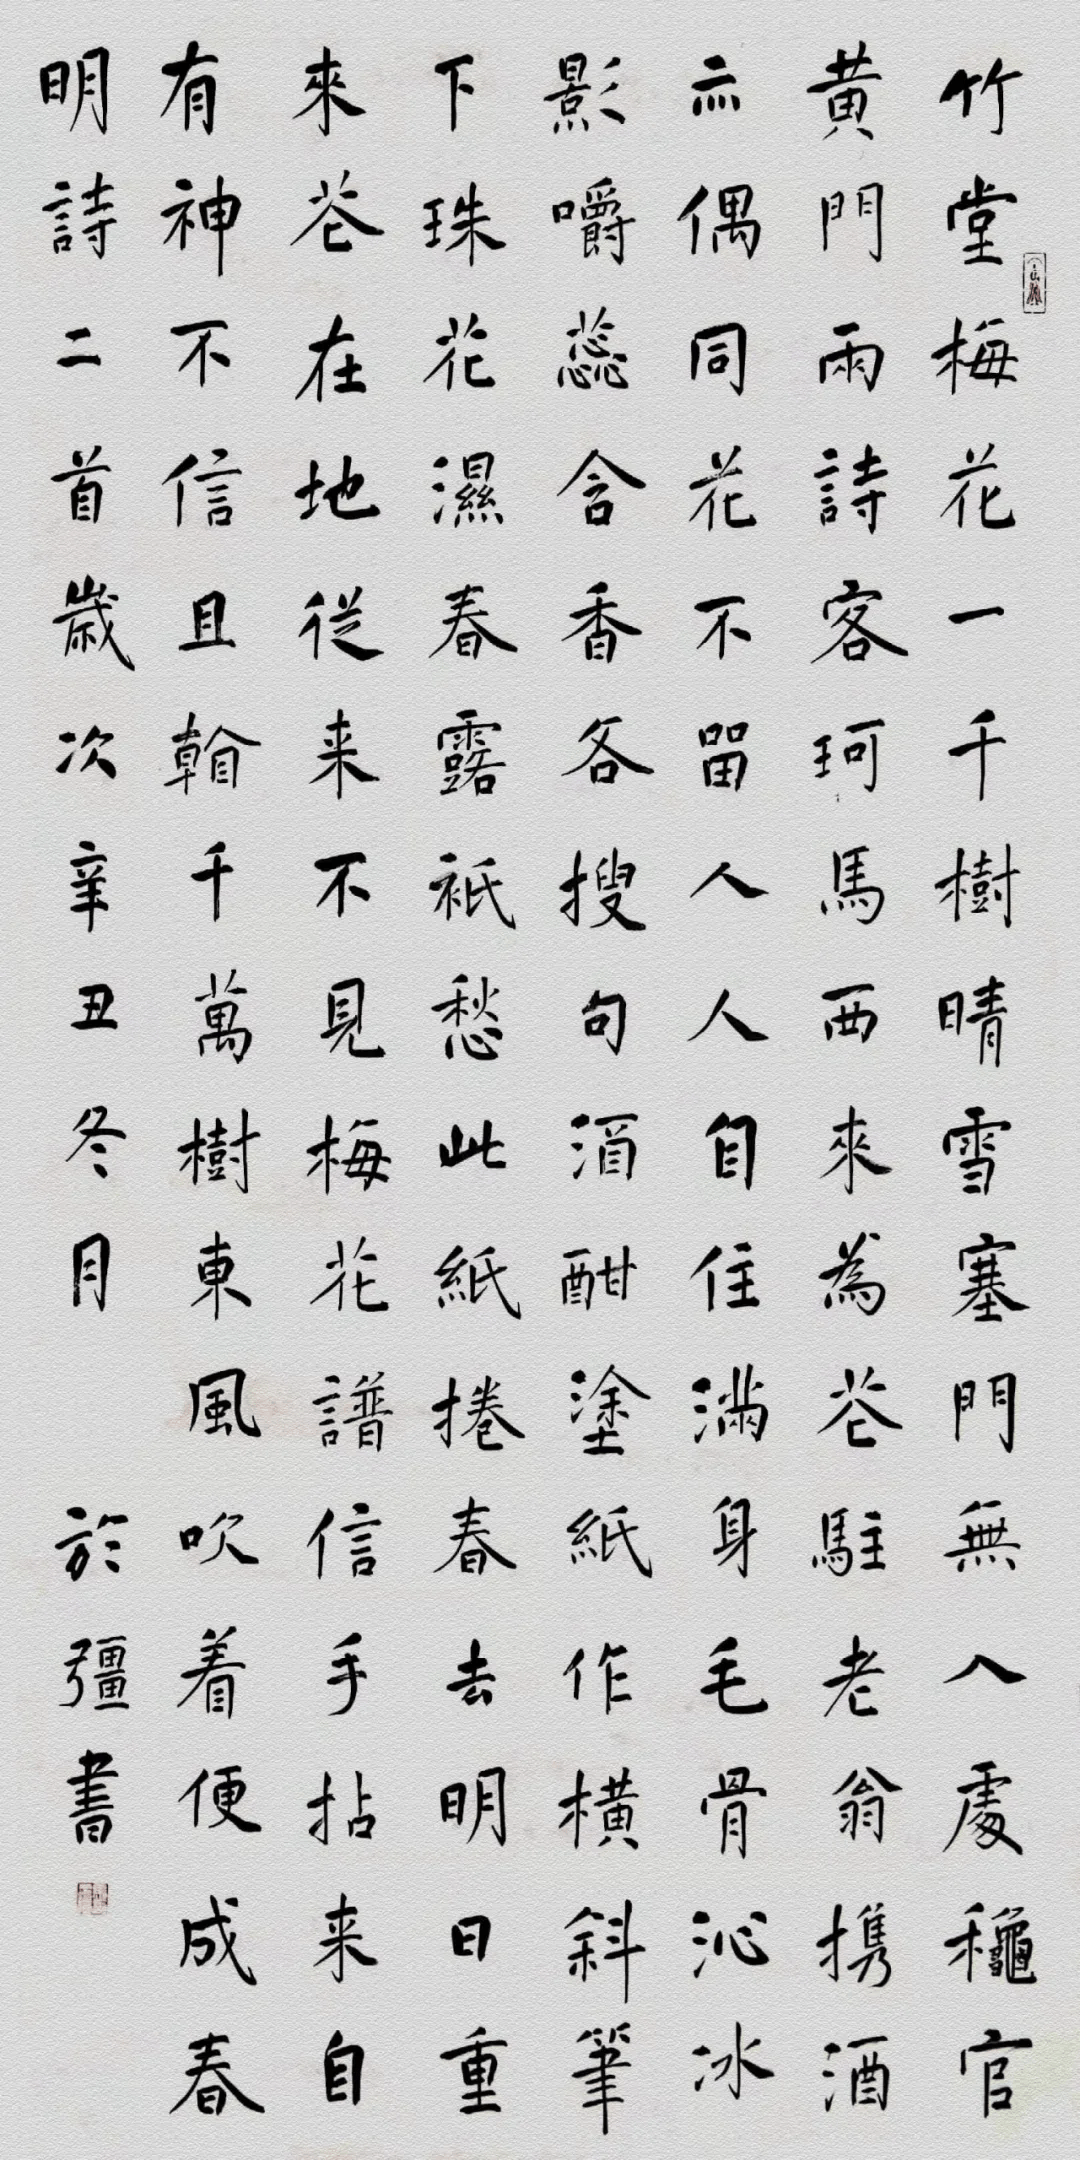 竹堂梅花一千樹晴雪塞門無入處穐官
黄門兩詩客珂馬西來為苍駐老翁携酒
亦偶同花不留人人自住滿身毛骨沁冰
影嚼蕊含香各搜句酒酣塗紙作橫斜筆
下珠花濕春露衹愁此紙捲春去明日重
來苍在地從来不見梅花譜信手拈来自
有神不信且㸔千萬樹東風吹着便成春
明詩二首歲次辛丑冬月於彊書